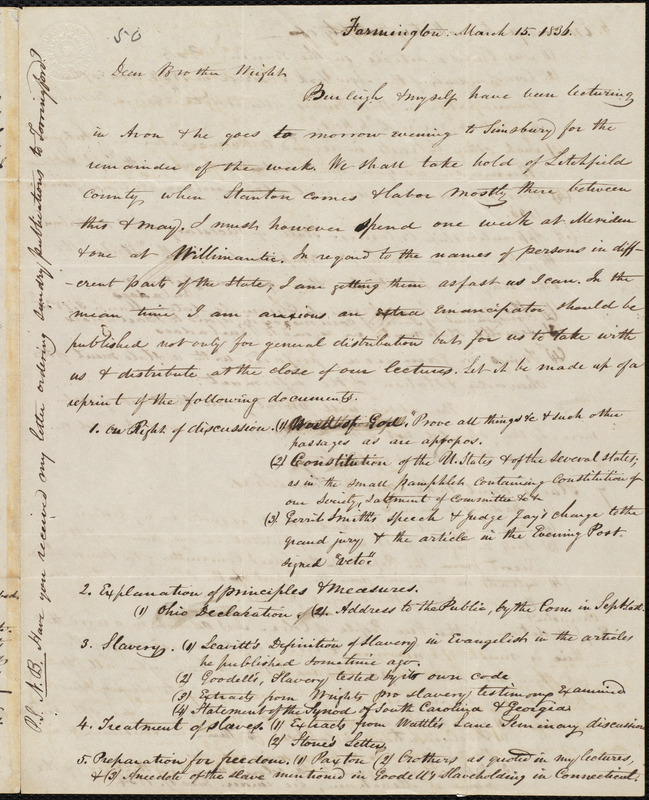 50
Farmington. March 15. 1836.
Dear Brother Wright
Burleigh & myself have been lecturing
in Avon & he goes to morrow evening to Simsbury for the
remainder of the week. We shall take hold of Litchfield
County, when Stanton comes & labor mostly there between
this & may. I must however spend one week at Meriden
& one at Willimantic. In regard to the names of persons in diff-
-erent parts of the state, I am getting them as fast as I can. In the
mean time I am anxious an extra Emancipator should be
published not only for general distribution but for us to take with
us & distribute at the close of our lectures. Let it be made up of a
reprint of the following documents.
1. On Right of discussion. (1) Word of God. "Prove all things &c & such other
passages as are apropos.
(2) Constitution of the U. States & of the several states;
as in the small pamphlet containing Constitution of
our Society, Statment of Committee &c &
(3) Gerrit Smith's speech & Judge Jay's charge to the
grand jury & the article in the Evening Post.
signed "Veto".
2. Explanation of principles & measures.
(1) Ohio Declaration. (2). Address to the Public, by the Com. in Sept last.
3. Slavery. (1) Leavitt's Definition of Slavery in Evangelist in the articles
he published sometime ago.
(2) Goodell's, Slavery tested by its own code
(3) Extracts from Wright's pro slavery testimony Examined
(4) Statement of the Synod of South Carolina & Georgia
4. Treatment of slaves. (1) Extracts from Wattle's Lane Seminary discussion
(2) Stone's Letter,
5. Preparation for freedom. (1) Paxton (2) Crothers as quoted in my lectures,
& (3) Anecdote of the slave mentioned in Goodell's Slaveholding in Connecticut.
P.S. N.B. Have you received my letter ordering sundry publications to Torringford?